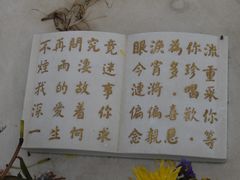 不再問究竟
煙雨淒迷
我的故事
深愛着你
一生何求
眼淚為你流
今宵多珍重
漣漪・喝采
偏偏喜歡你
念親恩・等